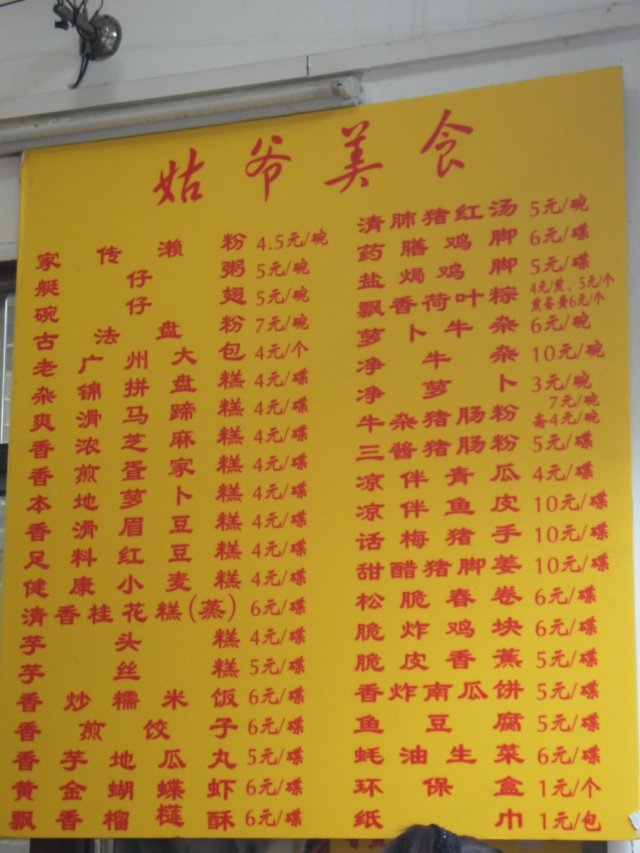 姑爷美食
家传濑粉 4.5元/碗
艇仔粥 5元/碗
碗仔翅 5元/碗
古法盘粉 7元/碗
老广州大包 4元/个
杂锦拼盘糕 4元/碟
爽滑马蹄糕 4元/碟
香浓芝麻糕 4元/碟
香煎疍家糕 4元/碟
本地萝卜糕 4元/碟
香滑眉豆糕 4元/碟
足料红豆糕 4元/碟
健康小麦糕 4元/碟
清香桂花糕(蒸) 6元/碟
芋头糕 4元/碟
芋丝糕 5元/碟
香炒糯米饭 6元/碟
香煎饺子 6元/碟
香芋地瓜丸 5元/碟
黄金蝴蝶虾 6元/碟
飘香榴梿酥 6元/碟
清肺猪红汤 5元/碗
药膳鸡脚 6元/碟
盐焗鸡脚 5元/碟
飘香荷叶粽 4元/蒸、5元/个
煎蛋黄6元/个
萝卜牛杂 6元/碗
净牛杂 10元/碗
净萝卜 3元/碗
牛杂猪肠粉 7元/碗
斋4元/碗
三酱猪肠粉 5元/碟
凉伴青瓜 4元/碟
凉伴鱼皮 10元/碟
话梅猪手 10元/碟
甜醋猪脚姜 10元/碟
松脆春卷 6元/碟
脆炸鸡块 6元/碟
脆皮香蕉 5元/碟
香炸南瓜饼 5元/碟
鱼豆腐 5元/碟
蚝油生菜 6元/碟
环保盒 1元/个
纸巾 1元/包